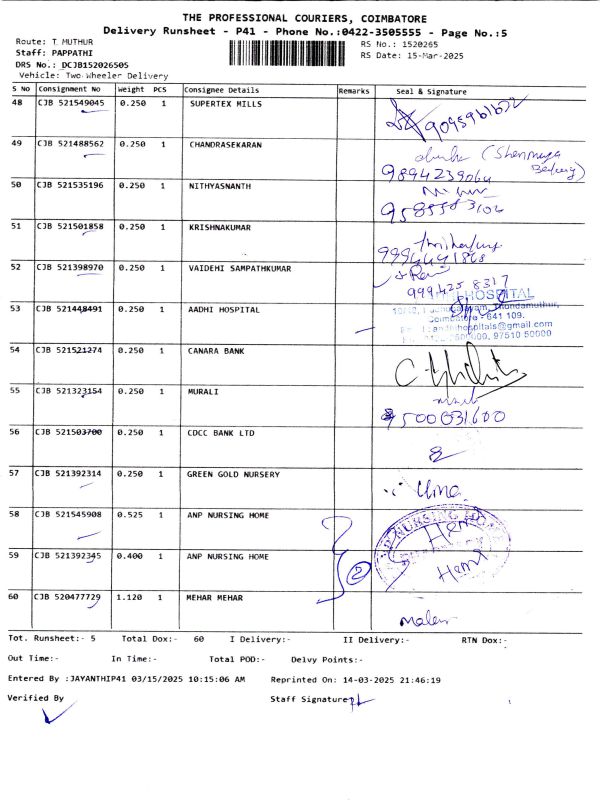 THE PROFESSIONAL COURIERS, COIMBATORE
Delivery Runsheet - P41 - Phone No.:0422-3505555 - Page No.:5
Route: T. MUTHUR
RS No.: 1520265
Staff: PAPPATHI
RS Date: 15-Mar-2025
DRS No.: DCJB152026505
Vehicle: Two Wheeler Delivery
S No Consignment No Weight PCS Consignee Details Remarks Seal & Signature
48 CJB 521549045 0.250 1 SUPERTEX MILLS
49 CJB 521488562 0.250 1 CHANDRASEKARAN
9894239064
50 CJB 521535196 0.250 1 NITHYASNANTH
51 CJB 521501858 0.250 1 KRISHNAKUMAR
52 CJB 521398970 0.250 1 VAIDEHI SAMPATHKUMAR
999425 8317
53 CJB 521448491 0.250 1 AADHI HOSPITAL
HOSPITAL
641 109.
97510 50000
54 CJB 521521274 0.250 1 CANARA BANK
55 CJB 521323154 0.250 1 MURALI
9500031600
56 CJB 521503700 0.250 1 CDCC BANK LTD
57 CJB 521392314 0.250 1 GREEN GOLD NURSERY
Uma
58 CJB 521545908 0.525 1 ANP NURSING HOME
NURSING
59 CJB 521392345 0.400 1 ANP NURSING HOME
2
60 CJB 520477729 1.120 1 MEHAR MEHAR
Tot. Runsheet:- 5 Total Dox:- 60 I Delivery:- II Delivery:- RTN Dox:-
Out Time:- In Time:- Total POD:- Delvy Points:-
Entered By :JAYANTHIP41 03/15/2025 10:15:06 AM Reprinted On: 14-03-2025 21:46:19
Verified By Staff Signature